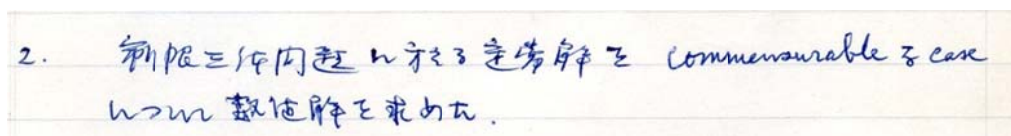 2. 制限三体問題に於ける定常解を commensurable な case
について数値解を求めた.